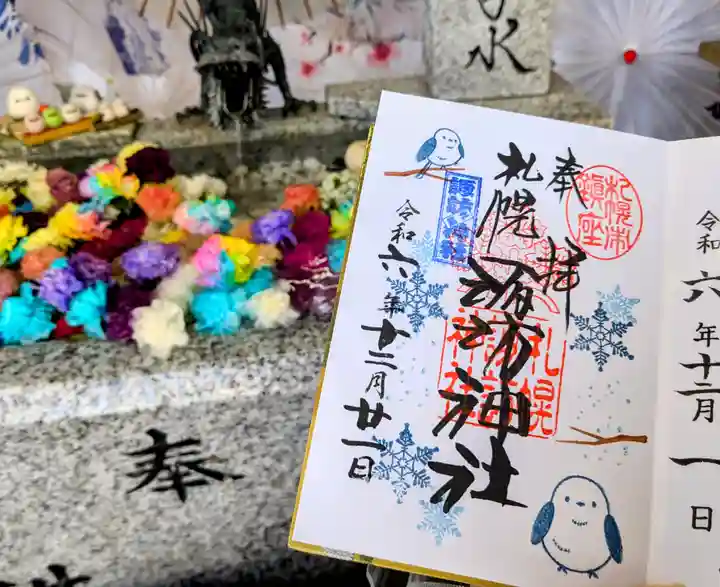 水
奉拝
札幌市
鎮座
札幌諏訪神社
諏訪神社
札幌
諏訪
神社
令和六年十二月廿一日
令和六年十二月一日
奉